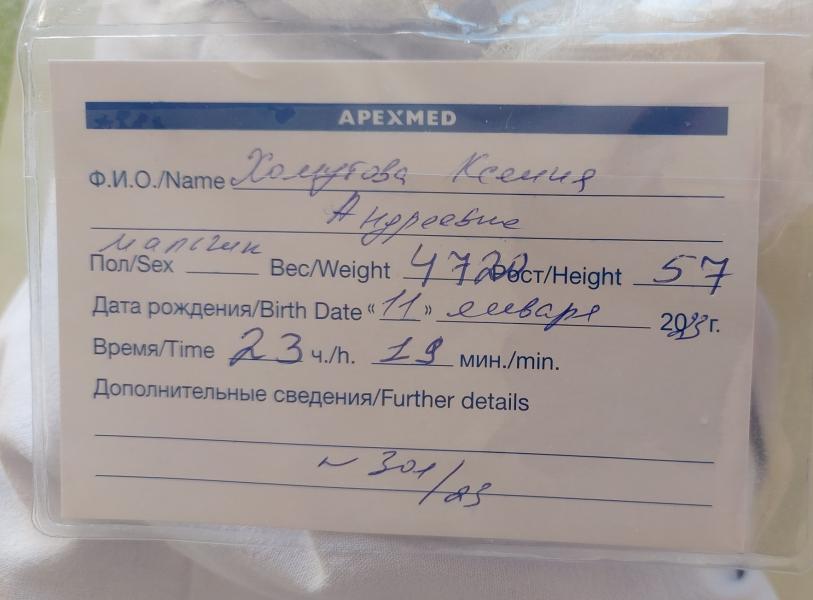 APEXMED
Ф.И.О./Name Хомутова Ксения
Андреевна
мальчик
Пол/Sex Вес/Weight 4720 Рост/Height 57
Дата рождения/Birth Date «11» января 2023 г.
Время/Time 23 ч./h. 19 мин./min.
Дополнительные сведения/Further details
№ 301/23